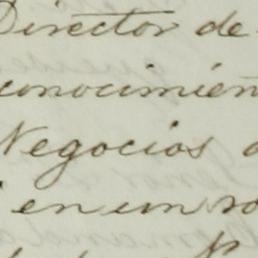 Director de
conocimien
Negocios
en un so